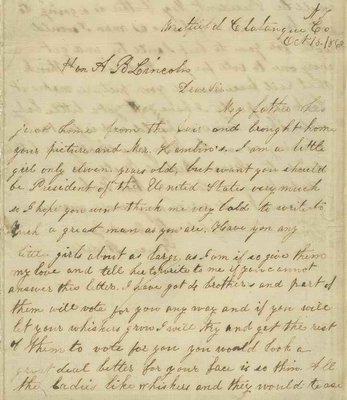 Westfield Chatauque Co
Oct 15. 1860
Hon A B Lincoln
Dear Sir
My father has
just home from the fair and brought home
your picture and Mr. Hamlin's. I am a little
girl only eleven years old, but want you should
be President of the United States very much
so I hope you wont think me very bold to write to
such a great man as you are. Have you any
little girls about as large as I am if so give them
my love and tell her to write to me if you cannot
answer this letter. I have got 4 brothers and part of
them will vote for you any way and if you will
let your whiskers grow I will try and get the rest
of them to vote for you you would look a
great deal better for your face is so thin. All
the ladies like whiskers and they would tease